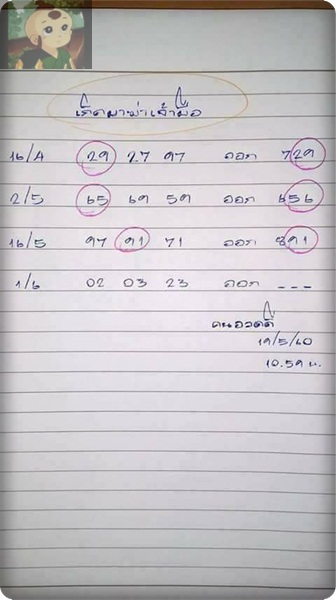 เด็ดพาม่าเจ้ามือ
16/4 29 27 97 ออก 729
2/5 65 69 59 ออก 656
16/5 97 91 71 ออก 391
1/6 02 03 23 ออก ---
คนอวดดี
19/5/60
10.59 น.